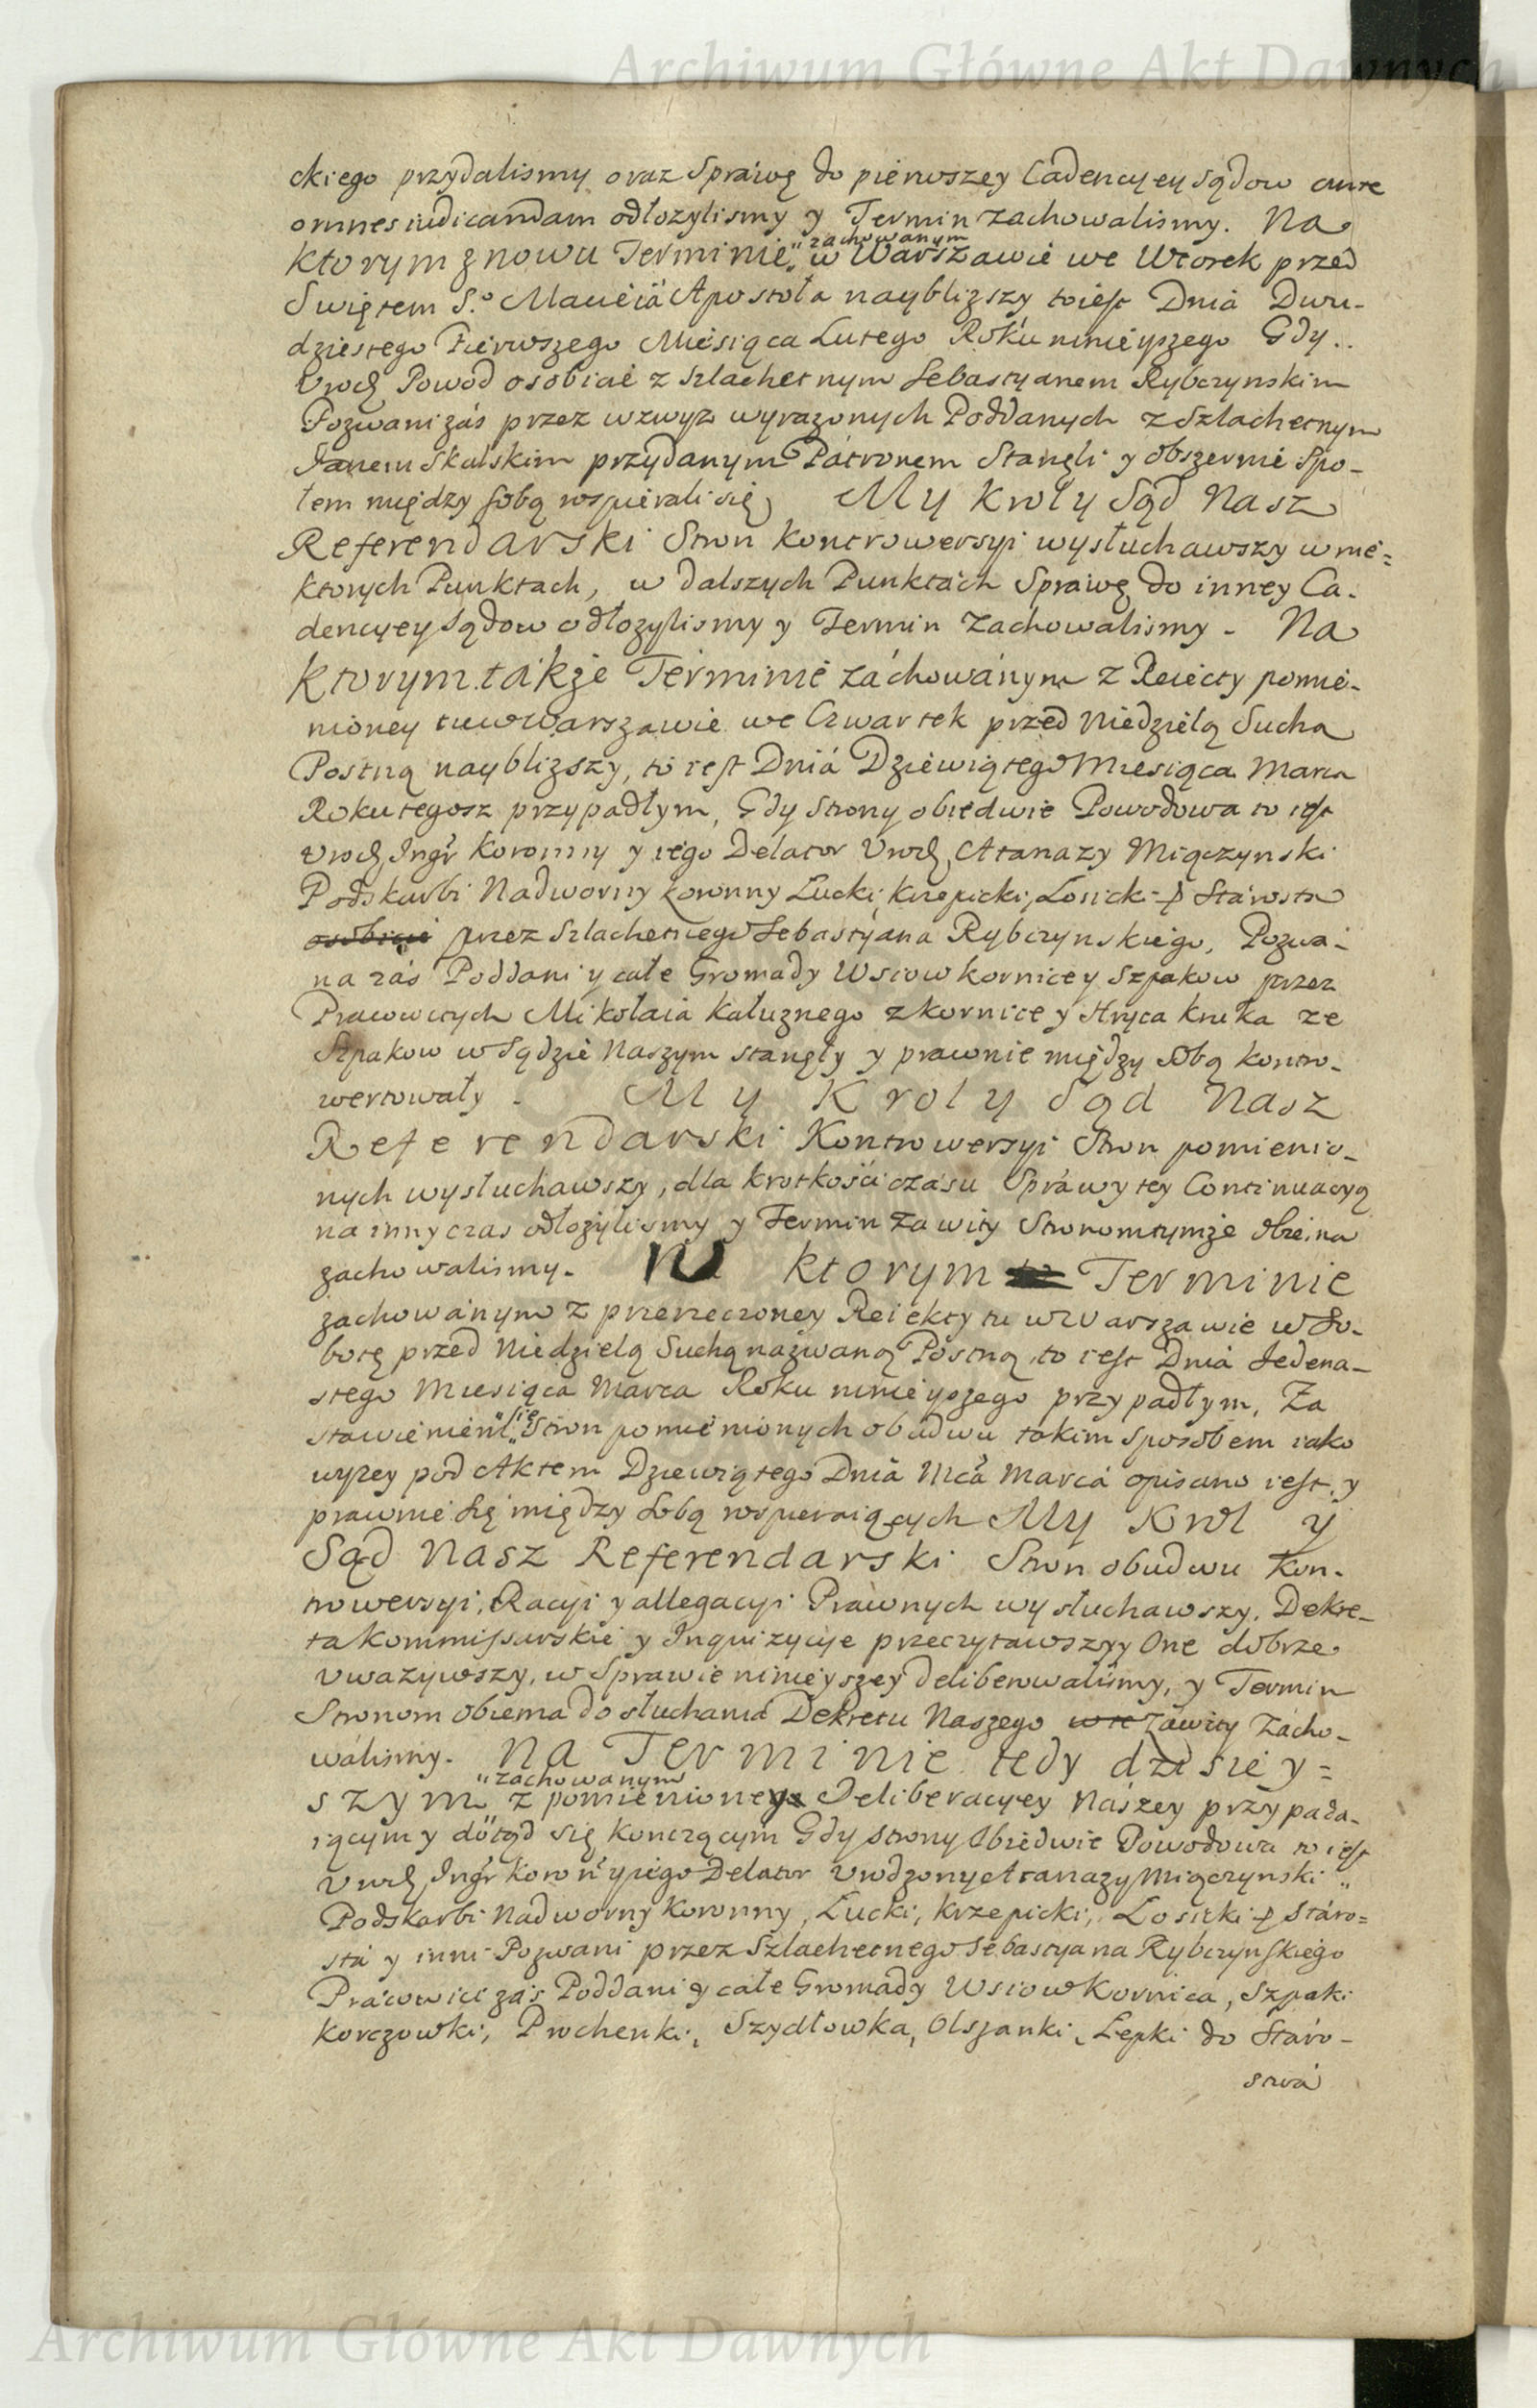 Archiwum Główne Akt Dawnych
ckiego przydalismy oraz Sprawę do pierwszey Cadencyey Sądow ante
omnes iudicandam odłozylismy y Termin zachowalismy. Na
ktorym znowu Terminie "zachowanym" w Warszawie we Wtorek przed
Swiętem S.º Macieia Apostoła naybliższy toiest Dnia Dwu-
dziestego Pierwszego Miesiąca Lutego Roku ninieyszego Gdy..
Urodz Powod osobiscie z Szlachetnym Sebastyanem Rybczynskim
Pozwani zás przez wzwyz wyrazonych Poddanych z Szlachetnym
Janem Skalskim przydanym Patronem Stanęli y obszernie Spo-
łem między sobą wspierali się My Kroly Sąd Nasz
Referendarski Stron kontrowersyi wysłuchawszy w nie=
ktorych Punktach, w dalszych Punktach Sprawę do inney Ca-
dencyey Sądow odłozylismy y Termin zachowalismy - Na
ktorym także Terminie záchowánym z Reiekty pomie-
nioney tu w Warszawie we Czwartek przed Niedzielą Sucha
Postną naybliższy, to iest Dniá Dziewiątego Miesiąca Marca
Roku tegosz przypadłym, Gdy Strony obiedwie Powodowa to iest
Urodz Ingr Koronny y iego Delator Urodz Atanazy Miączynski
Podskarbi Nadworny Koronny Łucki, Krzepicki, Łosicki & Starosta
osobiscie przez Szlachetnego Sebastyana Rybczynskiego, Pozwa-
na zás Poddani y całe Gromady Wsiow Kornice y Szpakow przez
Pracowitych Mikołaia Kałuznego z Kornice y Hryca Kruka ze
Szpakow w Sądzie Naszym stanęły y prawnie między Sobą kontro-
wertowały - My Kroly Sąd Nasz
Referendarski Kontrowersyi Stron pomienio-
nych wysłuchawszy, dla krotkości czasu Spráwy tey Continuacyą
na inny czas odłożylismy y Termin Zawity Stronom tymże
zachowalismy. Na ktorym Terminie
zachowánym z przerzeczoney Reiekty tu w Warszawie w So-
botę przed Niedzielą Suchą nazwaną Postną, to iest Dnia Jedena-
stego Miesiąca Marca Roku ninieyszego przypadłym, Za
stawieniem "się" Stron pomienionych obudwu takim sposobem iako
wyzey pod Aktem Dziewiątego Dnia Mcá Marca opisano iest, y
prawnie się między Sobą wspieraiących My Krol y
Sąd Nasz Referendarski Stron obudwu Kon-
trowersyi, Racyi y allegacyi Prawnych wysłuchawszy, Dekre-
ta Kommissarskie y Inquizycye przeczytawszy y One dobrze
Uwazywszy, w Sprawie ninieyszey deliberowalismy, y Termin
Stronom obiema do słuchania Dekretu Naszego Zawity Zácho-
wálismy. Na Terminie tedy dzisiey=
szym "zachowanym" z pomienioney Deliberacyey Nászey przypada-
iącym y dotąd się konczącym Gdy strony Obiedwie Powodowa to iest
Urodz Ingr Koron y iego Delator Urodzony Atanazy Miączynski "
Podskarbi Nadworny Koronny, Łucki, Krzepicki, Łosicki & Stáro=
stá y inni Pozwani przez Szlachetnego Sebastyana Rybczynskiego
Prácowici zás Poddani y całe Gromady Wsiow Kornica, Szpaki
Korczowki, Prochenki, Szydłowka, Olszanki, Łepki do Stáro-
stwá
Archiwum Główne Akt Dawnych